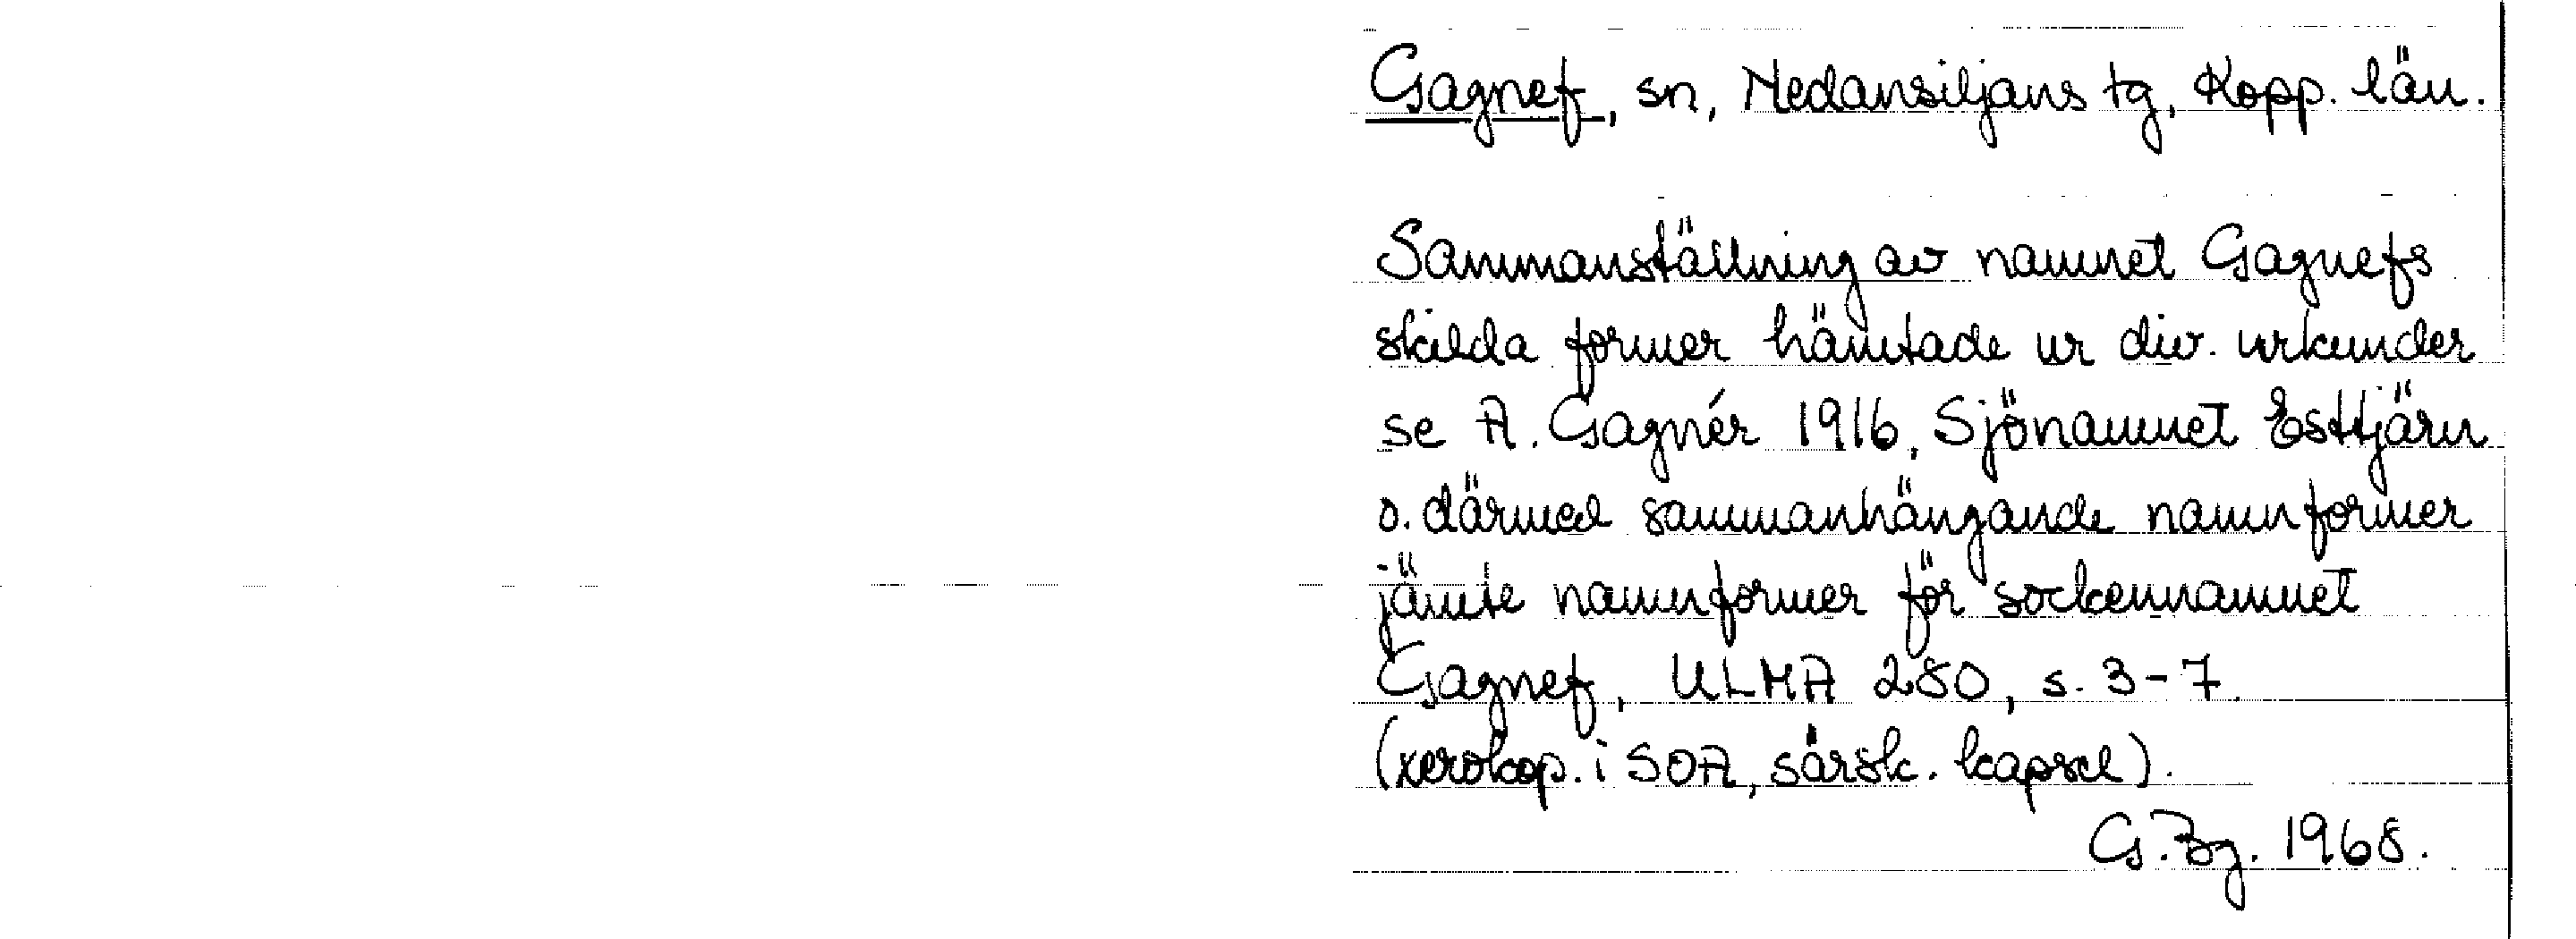 Gagnef, sn, Nedansiljans tg, Kopp. län.
Sammanställning av namnet Gagnefs
skilda former hämtade ur div. urkunder
se A. Gagnér 1916, Sjönamnet Esttjärn
o. därmed sammanhängande namnformer
jämte namnformer för sockennamnet
Gagnef, ULMA 280, s. 3-7.
(xerokop. i SOA, särsk. kapsel).
G. Bg. 1968.